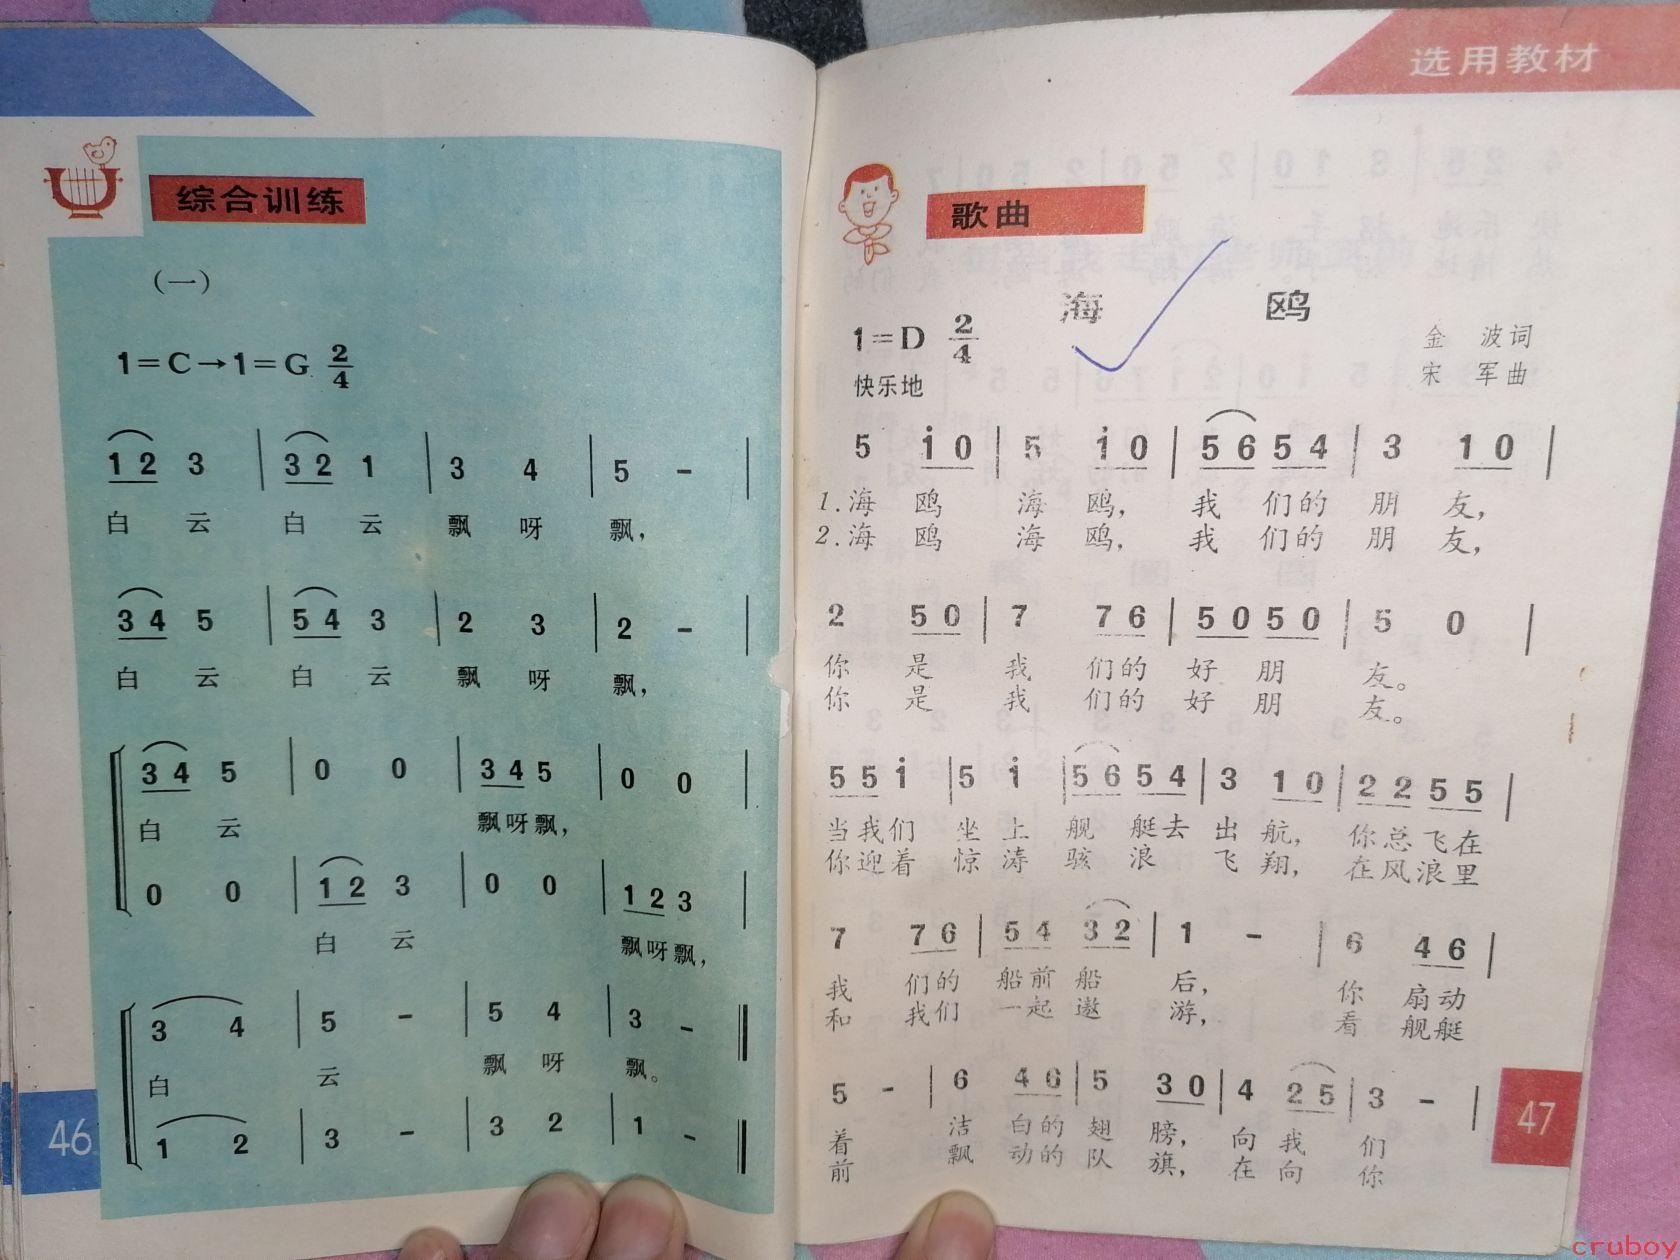 综合训练
（一）
1＝C→1＝G 2/4
1 2 3 | 3 2 1 | 3 4 | 5 － |
白 云 白 云 飘 呀 飘，
3 4 5 | 5 4 3 | 2 3 | 2 － |
白 云 白 云 飘 呀 飘，
3 4 5 | 0 0 | 3 4 5 | 0 0 |
白 云 飘呀飘，
0 0 | 1 2 3 | 0 0 | 1 2 3 |
白 云 飘呀飘，
3 4 | 5 － | 5 4 | 3 － ‖
白 云 飘 呀 飘。
1 2 | 3 － | 3 2 | 1 － ‖
46
选用教材
歌曲
海 鸥
1＝D 2/4
快乐地
金 波词
宋 军曲
5 i 0 | 5 i 0 | 5 6 5 4 | 3 1 0 |
1.海 鸥 海 鸥， 我 们的 朋 友，
2.海 鸥 海 鸥， 我 们的 朋 友，
2 5 0 | 7 7 6 | 5 0 5 0 | 5 0 |
你 是 我 们的 好 朋 友。
你 是 我 们的 好 朋 友。
5 5 i | 5 i | 5 6 5 4 | 3 1 0 | 2 2 5 5 |
当我们 坐 上 舰 艇去 出 航， 你总飞在
你迎着 惊 涛 骇 浪 飞 翔， 在风浪里
7 7 6 | 5 4 3 2 | 1 － | 6 4 6 |
我 们的 船前 船 后， 你 扇动
和 我们 一起 遨 游， 看 舰艇
5 － | 6 4 6 | 5 3 0 | 4 2 5 | 3 － |
着 洁 白的 翅 膀， 向 我 们
前 飘 动的 队 旗， 在 向 你
47
cruboy